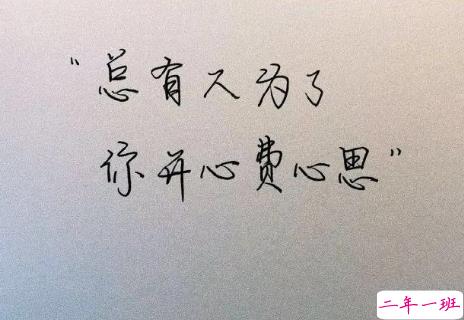 “总有人为了
你并心费心思”
二年一班